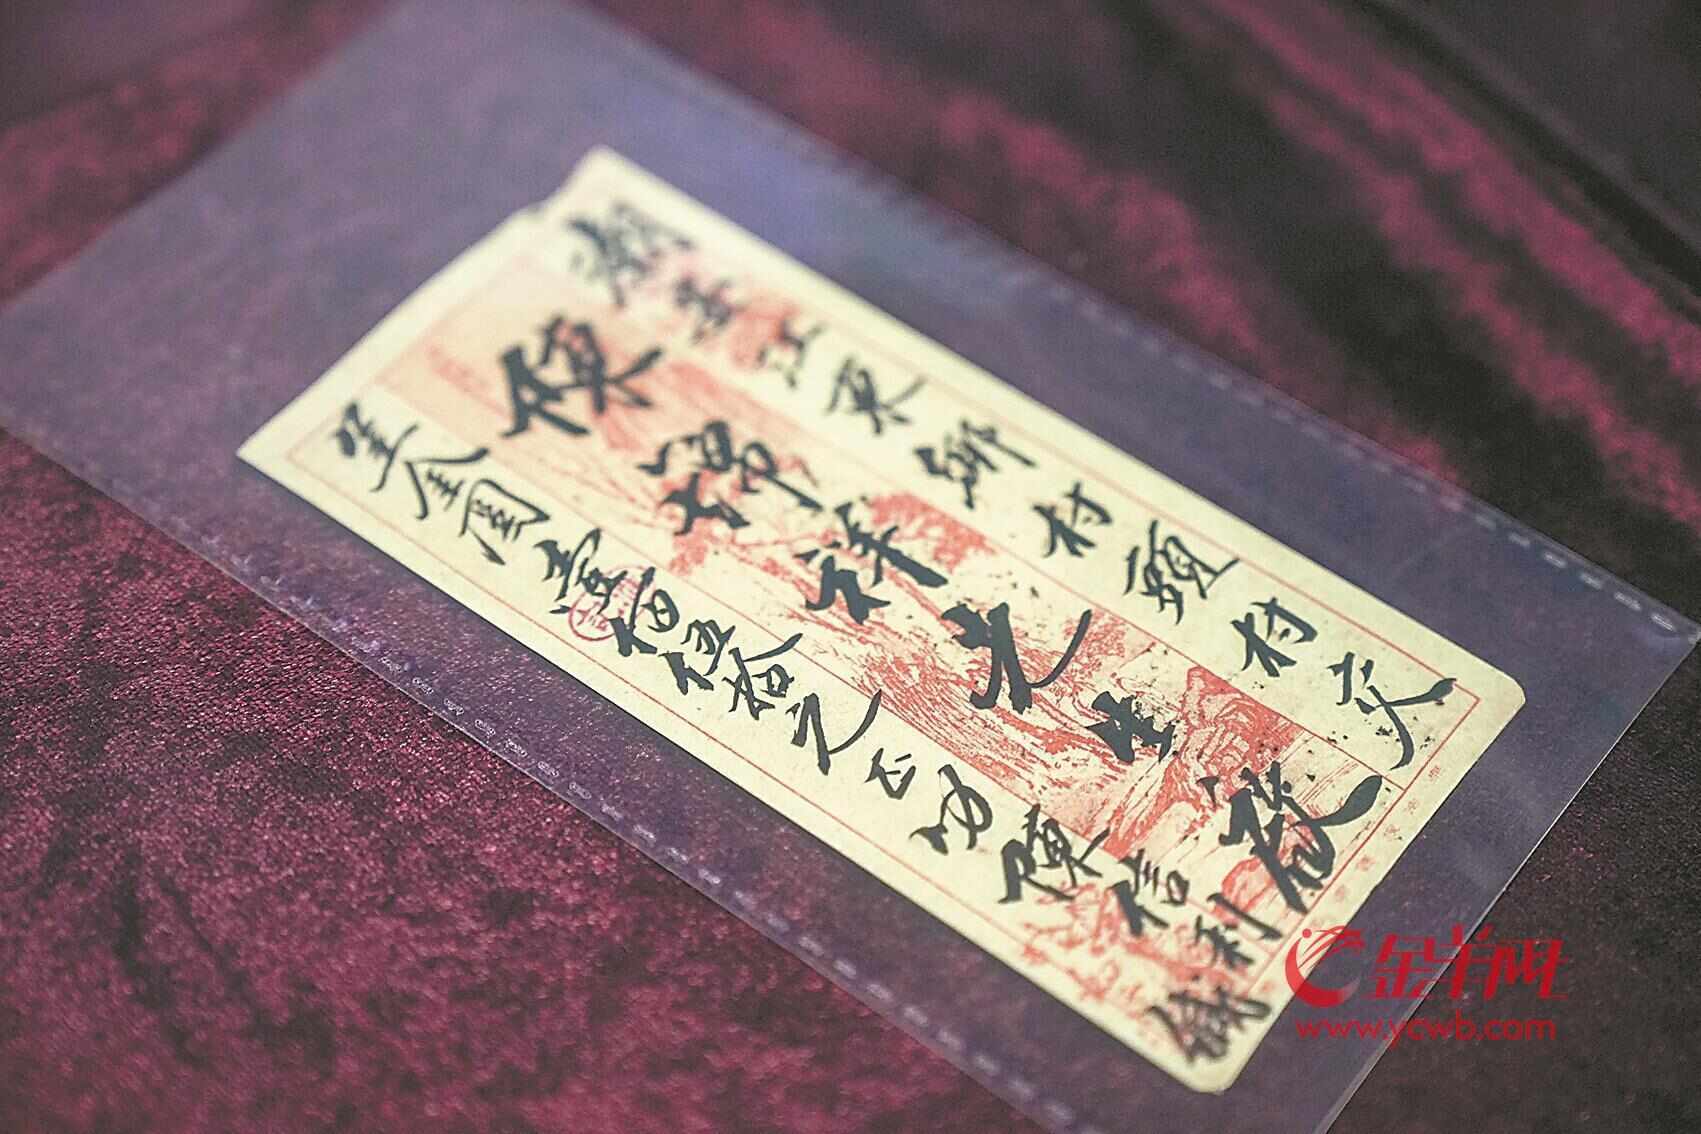 潮安江東鄉村頭村交
陳祥先生啟
金圓壹佰伍拾元正叻陳信利緘
金羊网
www.ycwb.com